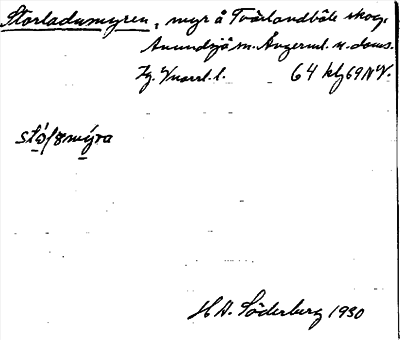 Storladumyren, myr å Tvärlandböle skog,
Anundsjö sn. Ångerml. n. doms.
Zg. Vnorrl. l. 64 kbg 69 NV.
stó/amýra
H A. Söderberg 1930